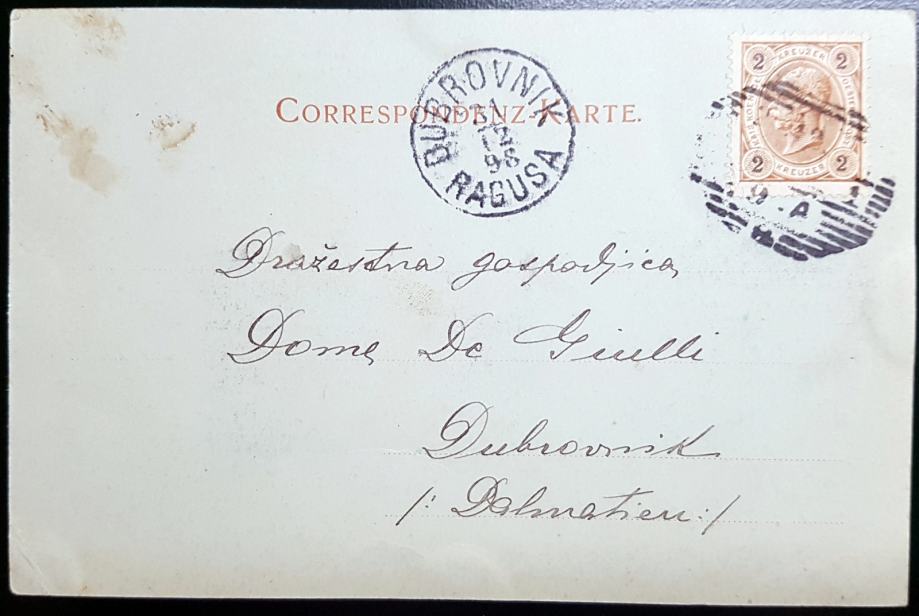 CORRESPONDENZ-KARTE.
DUBROVNIK
12
98
RAGUSA
2 KREUZER 2
2 KREUZER 2
9. A 1
Dražestna gospodjica
Dome De Giulli
Dubrovnik
/: Dalmatien :/